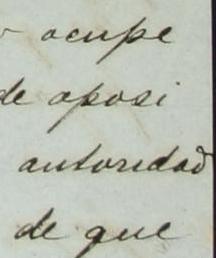 ocupe
de oposi
autoridad
de que